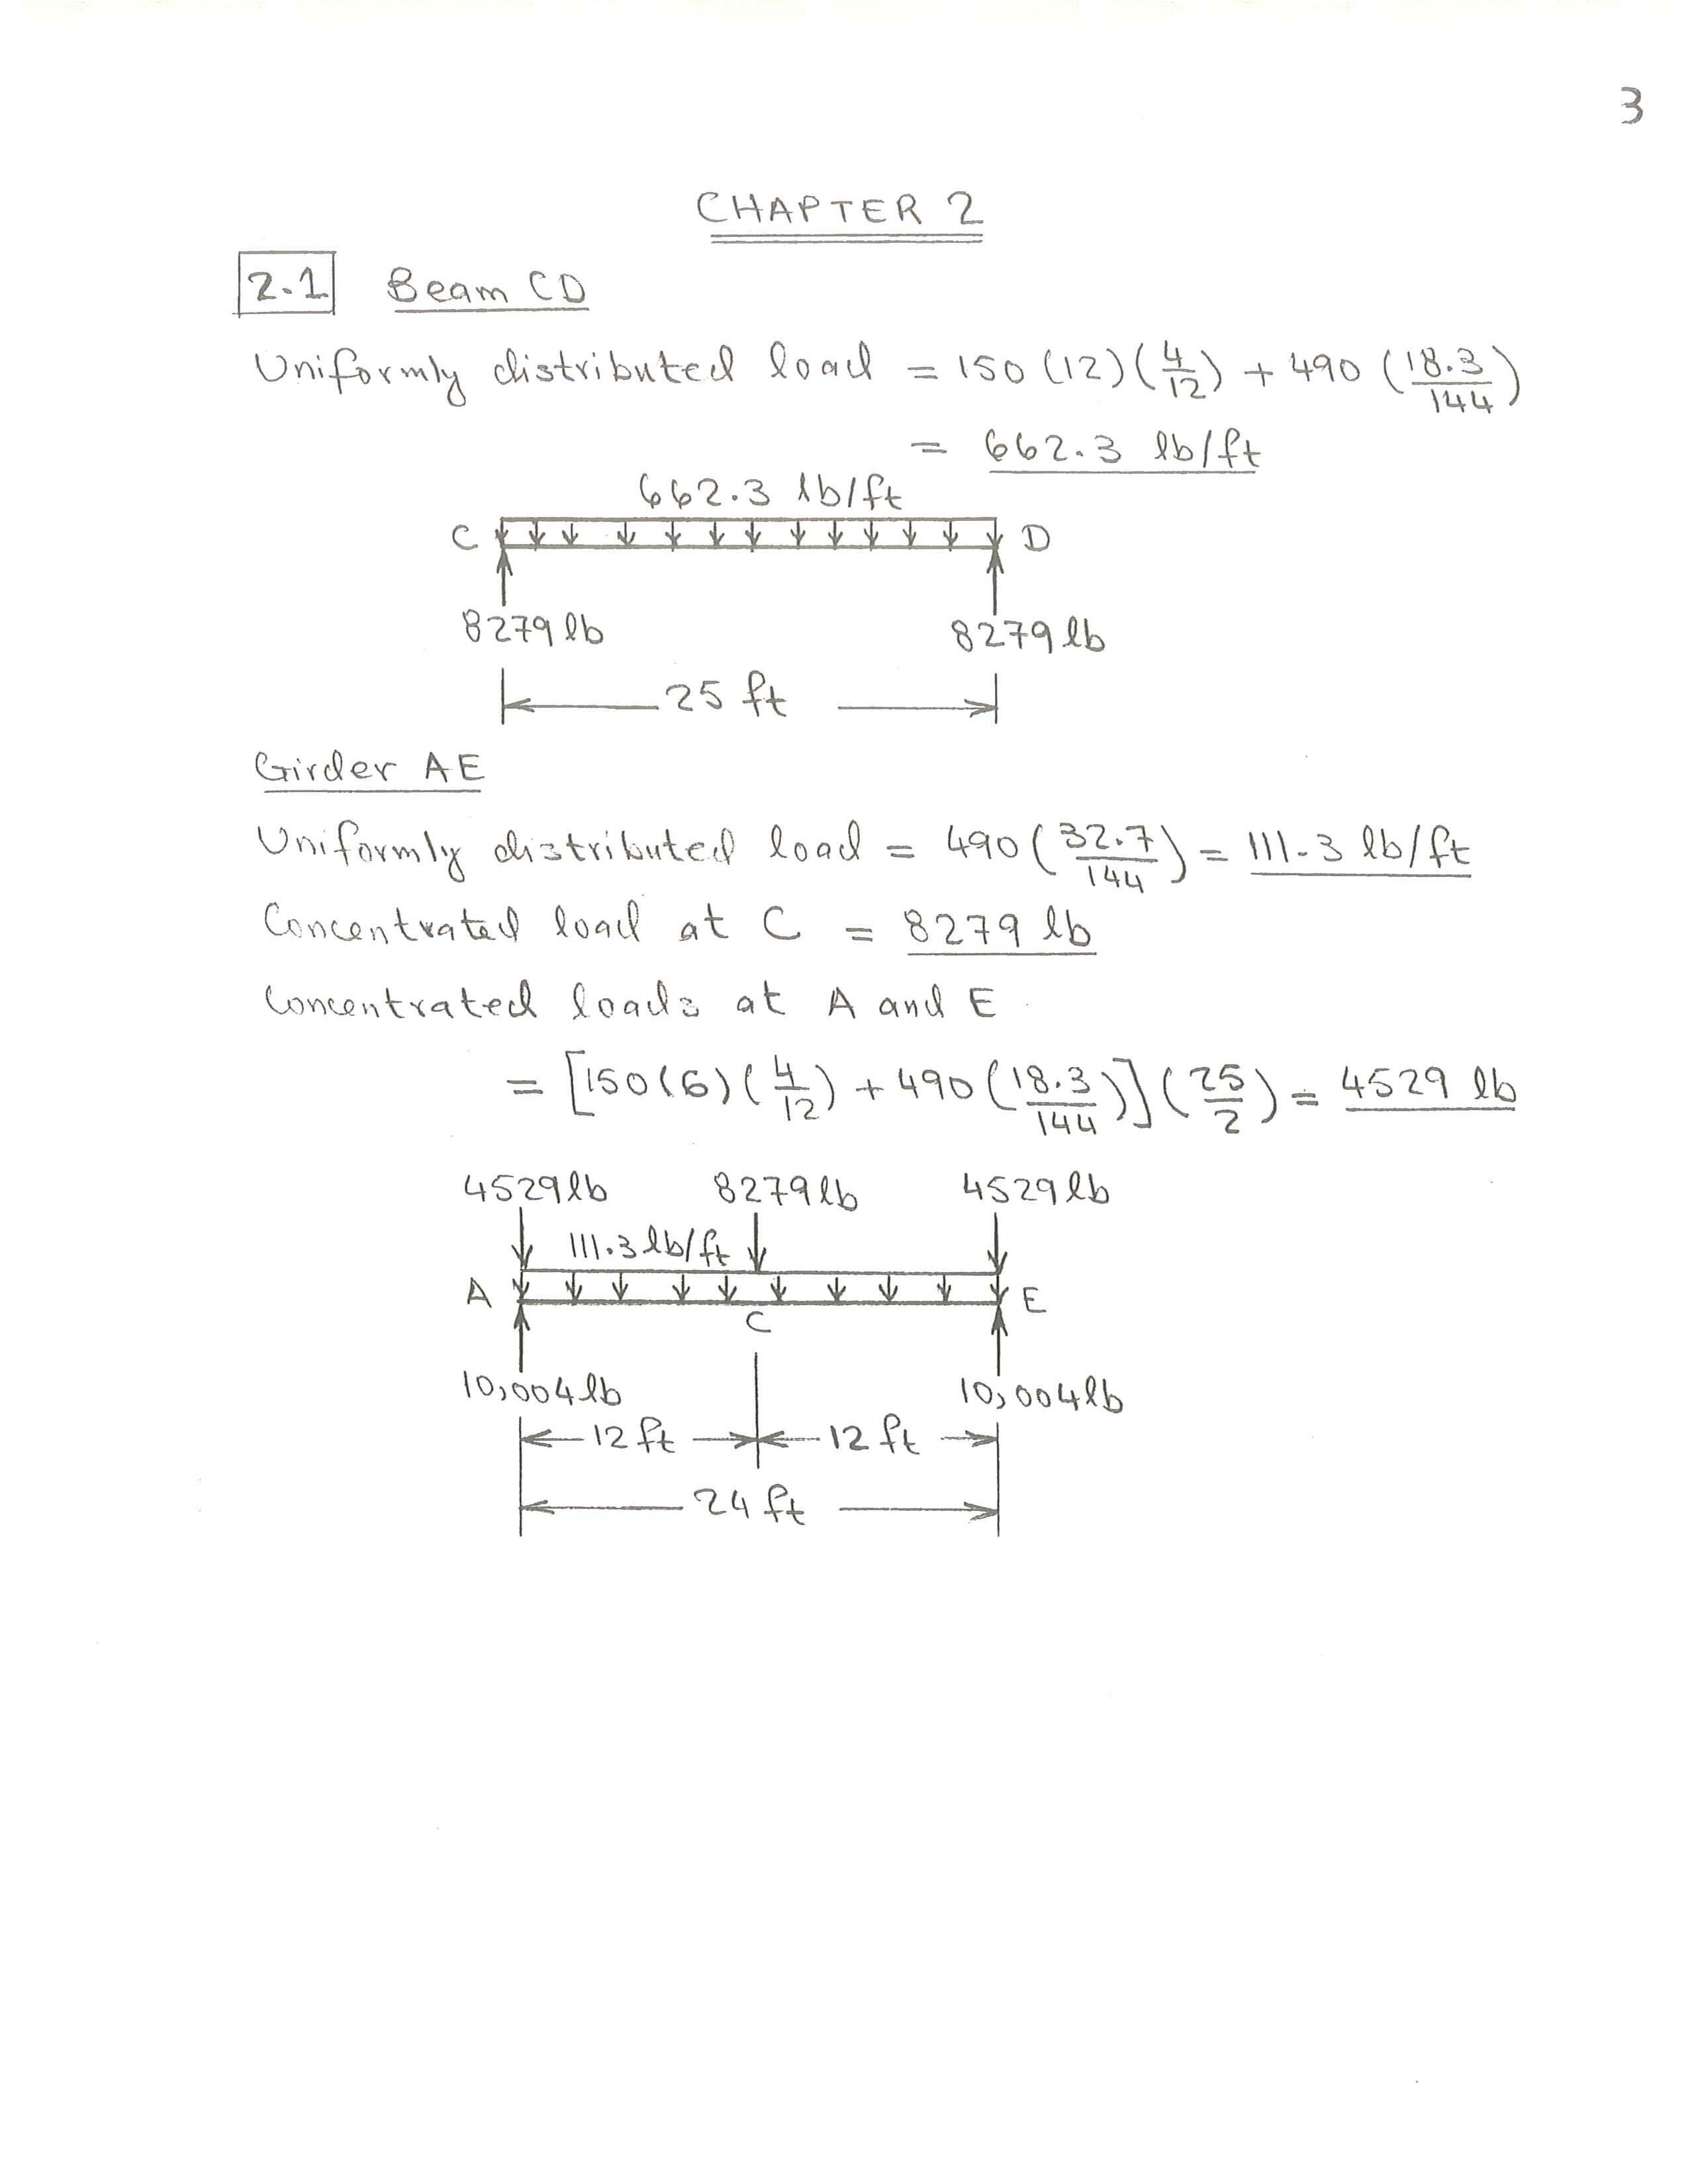 3
CHAPTER 2
2.1 Beam CD
Uniformly distributed load = 150 (12) (4/12) + 490 (18.3/144)
= 662.3 lb/ft
662.3 lb/ft
C D
8279 lb 8279 lb
25 ft
Girder AE
Uniformly distributed load = 490 (32.7/144) = 111.3 lb/ft
Concentrated load at C = 8279 lb
Concentrated loads at A and E
= [150(6)(4/12) + 490 (18.3/144)] (25/2) = 4529 lb
4529 lb 8279 lb 4529 lb
111.3 lb/ft
A E
C
10,004 lb 10,004 lb
12 ft 12 ft
24 ft